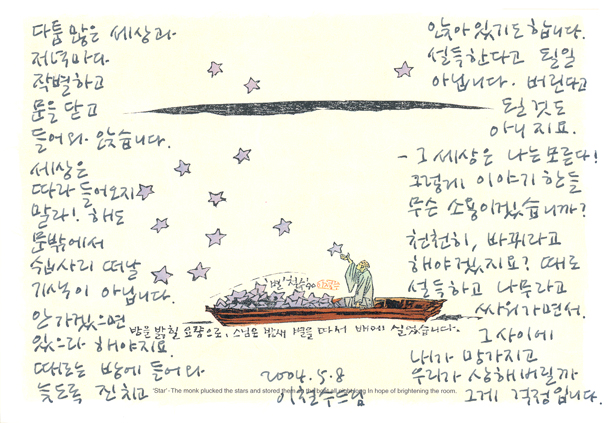 다툼 많은 세상과
저녁마다
작별하고
문을 닫고
들어와 앉습니다.
세상은
따라 들어오지
말라! 해도
문밖에서
쉽사리 떠날
기색이 아닙니다.
안 가겠으면
있으라 해야지요.
때로는 방에 들어와
늦도록 진 치고
앉아 있기도 합니다.
설득한다고 될 일
아닙니다. 버린다고
될 것도
아니지요.
- 그 세상은 나는 모른다!
그렇게 이야기 한들
무슨 소용이겠습니까?
천천히, 바꾸라고
해야겠지요? 때로
설득하고 나무라고
싸워가면서.
그 사이에
내가 망가지고
우리가 상해버릴까
그게 걱정입니다.
밤을 밝힐 요량으로, 스님은 밤새 별을 따서 배에 실었습니다.
2004.5.8
이철수 드림
'Star'- The monk plucked the stars and stored them on the boat all night long In hope of brightening the room.